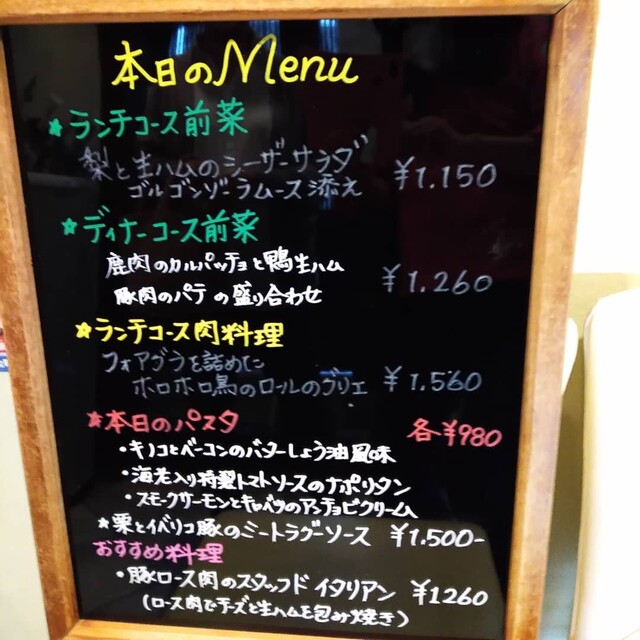 本日のMenu
★ランチコース前菜
梨と生ハムのシーザーサラダ
ゴルゴンゾーラムース添え ¥1.150
★ディナーコース前菜
鹿肉のカルパッチョと鴨生ハム
豚肉のパテの盛り合わせ ¥1.260
★ランチコース肉料理
フォアグラを詰めた
ホロホロ鳥のロールのグリエ ¥1.560
★本日のパスタ 各¥980
・キノコとベーコンのバターしょう油風味
・海老入り特製トマトソースのナポリタン
・スモークサーモンとキャベツのアンチョビクリーム
★栗とイベリコ豚のミートラグーソース ¥1.500-
おすすめ料理
・豚ロース肉のスタッフドイタリアン ¥1260
(ロース肉でチーズと生ハムを包み焼き)